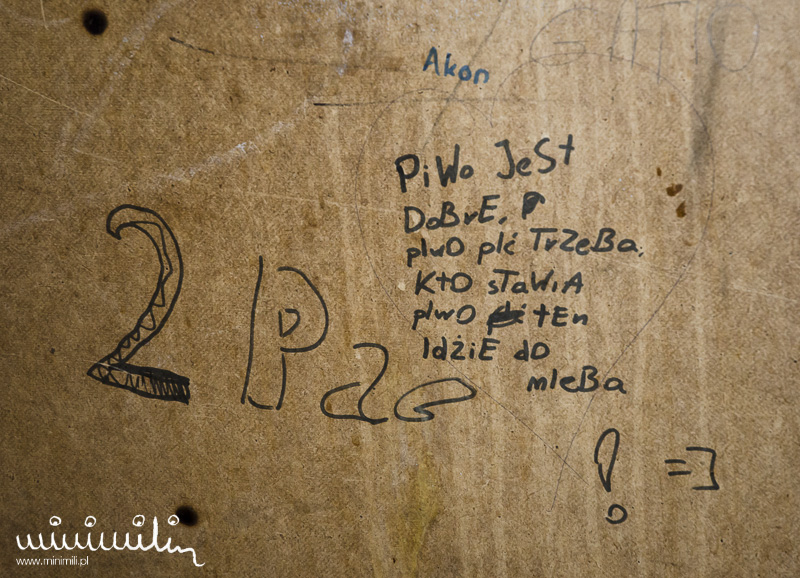 Akon
PiWo JeSt
DoBrE, P
pIwO pIć TrZeBa,
KtO sTaWiA
pIwO tEn
IdźiE dO
mIeBa
! =]
2 Pac
minimili
www.minimili.pl